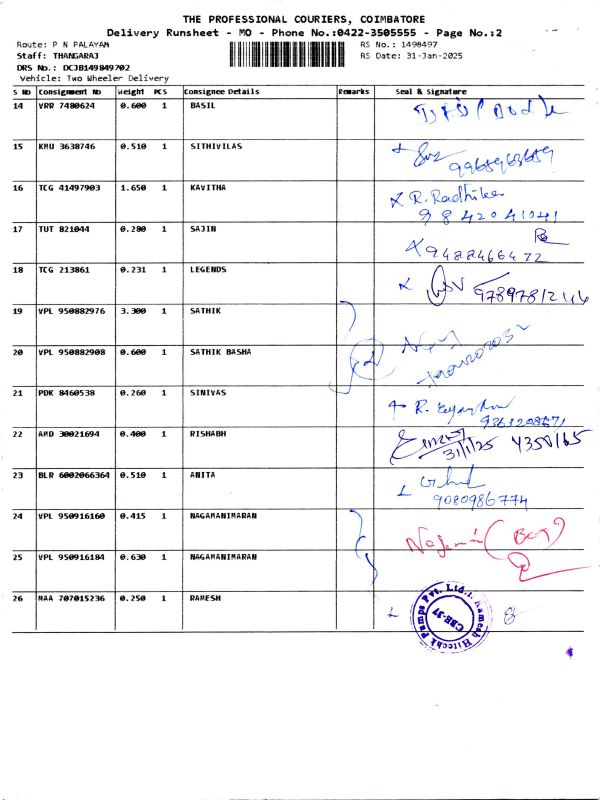 THE PROFESSIONAL COURIERS, COIMBATORE
Delivery Runsheet - MO - Phone No.:0422-3505555 - Page No.:2
Route: P N PALAYAM RS No.: 1498497
Staff: THANGARAJ RS Date: 31-Jan-2025
DRS No.: DCJB149849702
Vehicle: Two Wheeler Delivery
S NO Consignment No Weight PCS Consignee Details Remarks Seal & Signature
14 VRR 7480624 0.600 1 BASIL
15 KMU 3638746 0.510 1 SITHIVILAS
16 TCG 41497903 1.650 1 KAVITHA R. Radhika
9842041041
17 TUT 821044 0.280 1 SAJIN
9488466472
18 TCG 213861 0.231 1 LEGENDS
19 VPL 950882976 3.300 1 SATHIK
20 VPL 950882908 0.600 1 SATHIK BASHA
21 PDK 8460538 0.260 1 SINIVAS R.
22 AMD 30021694 0.400 1 RISHABH
31/1/25
23 BLR 6002066364 0.510 1 ANITA
9080986774
24 VPL 950916160 0.415 1 NAGAMANIMARAN
25 VPL 950916184 0.630 1 NAGAMANIMARAN
26 MAA 707015236 0.250 1 RAMESH
Ramesh Hitecht Pumps Pvt. Ltd.
CBE-37